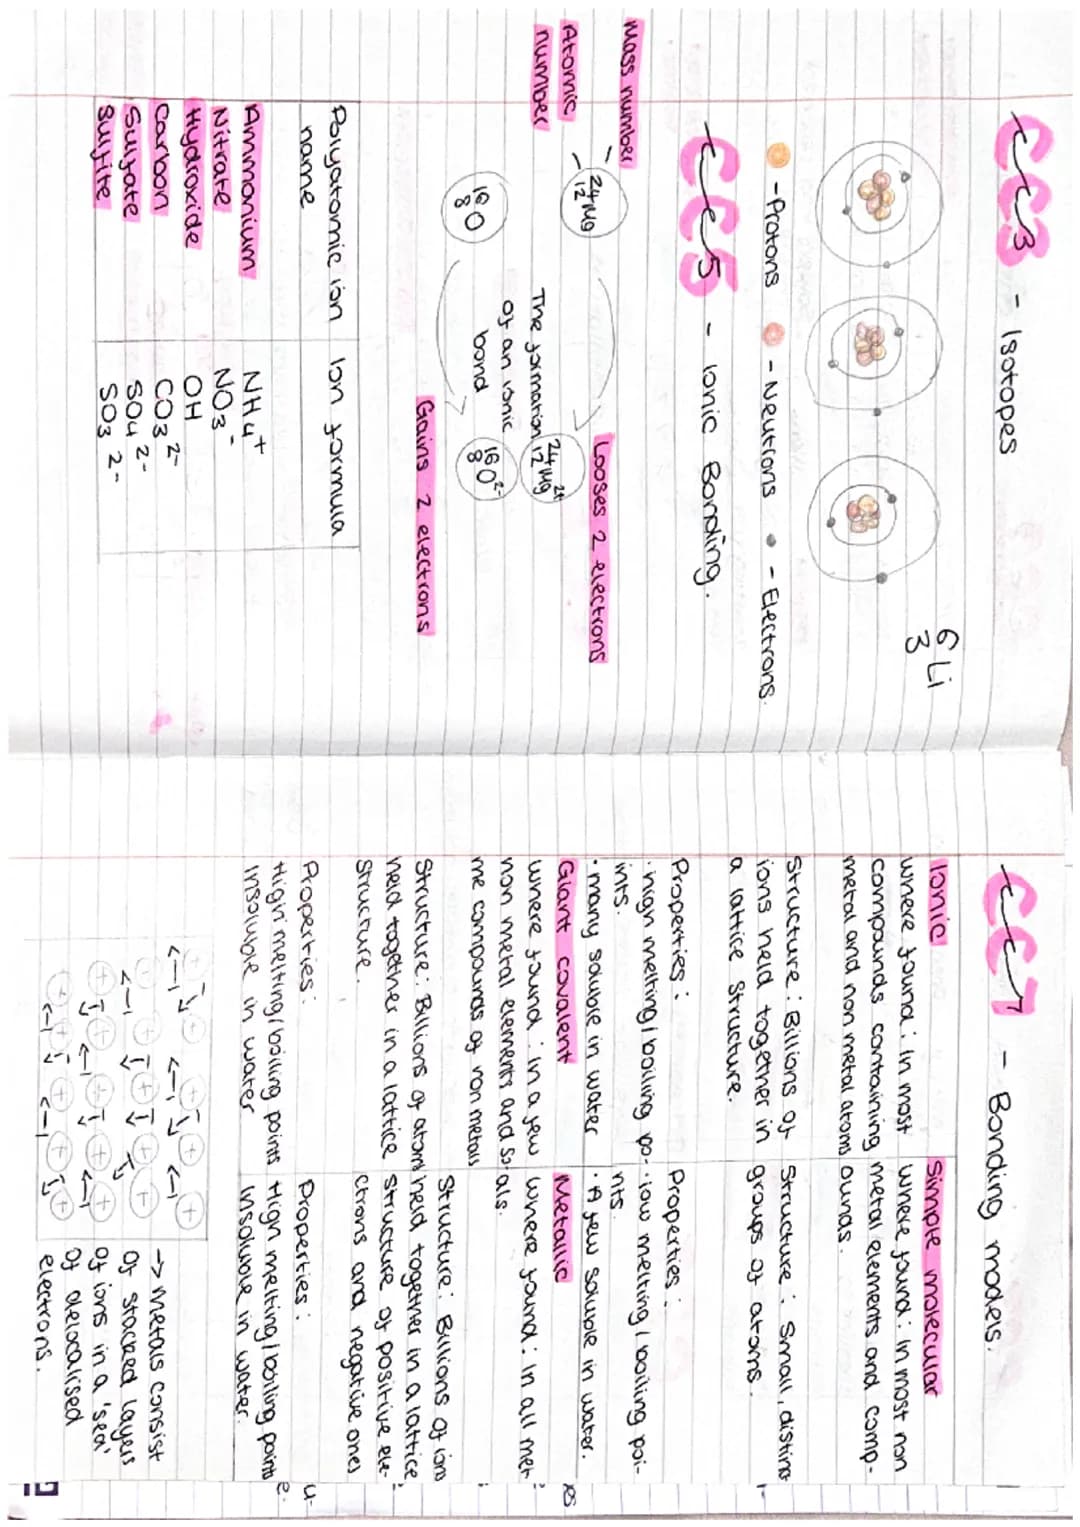 CC3 - Isotopes
6 Li
3
- Protons - Neutrons - Electrons.
CC5 - Ionic Bonding.
Mass number
Atomic
number
24
12 Mg
Looses 2 electrons
24 2+
12 Mg
The formation
of an ionic
bond
16
8 O
16 2-
8 O
Gains 2 electrons
Polyatomic ion name Ion formula
Ammonium NH4+
Nitrate NO3-
Hydroxide OH
Carbon CO3 2-
Sulfate SO4 2-
Sulfite SO3 2-
CC7 - Bonding models.
Ionic
where found: in most
compounds containing
metal and non metal atoms
Structure: Billions of
ions held together in
a lattice structure.
Properties:
· high melting/boiling po-
ints.
· many soluble in water
Simple molecular
where found: in most non
metal elements and comp-
ounds.
Structure: Small, distinct
groups of atoms.
Properties:
· low melting/boiling poi-
nts.
· A few soluble in water.
Giant covalent
where found: in a few
non metal elements and so-
me compounds of non metals
Structure: Billions of atoms
held together in a lattice
structure.
Properties:
High melting/boiling points
Insoluble in water
Metallic
where found: in all met-
als.
Structure: Billions of ions
held together in a lattice
structure of positive ele-
ctrons and negative ones
Properties:
High melting/boiling points
Insoluble in water.
→ Metals consist
of stacked layers
of ions in a 'sea'
of delocalised
electrons.